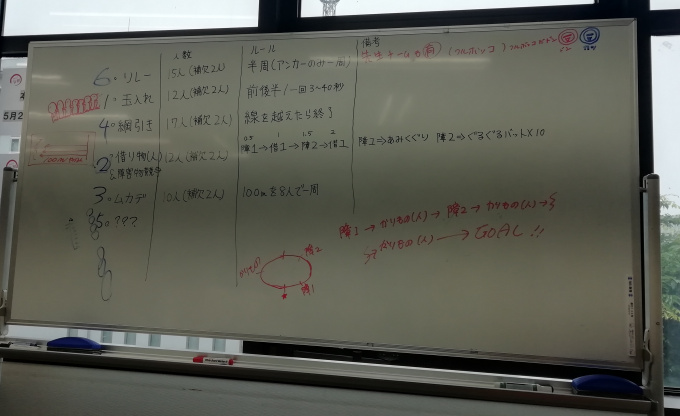 人数 ルール 備考
6・リレー 15人(補欠2人) 半周(アンカーのみ一周) 先生チームも有
1・玉入れ 12人(補欠2人) 前後半/一回3~40秒
4・綱引き 17人(補欠2人) 線を越えたら終了
0.5 1 1.5 2
2・借り物(人)&障害物競争 12人(補欠2人) 障1→借1→障2→借2 障1⇒あみくぐり 障2⇒ぐるぐるバット×10
3・ムカデ 10人(補欠2人) 100mを8人で一周
5・???
障1→かりもの(人)→障2→かりもの(人)→
かりもの(人)→GOAL!!
障2
障1
5月2